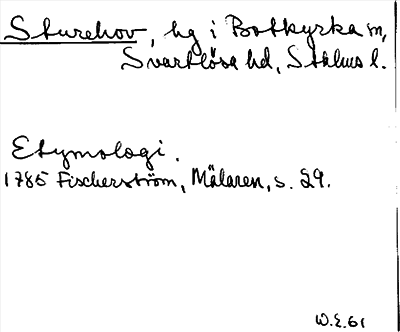 Sturehov, hg i Botkyrka sn,
Svartlösa hd, Sthlms l.
Etymologi.
1785 Fischerström, Mälaren, s. 29.
W.E. 61